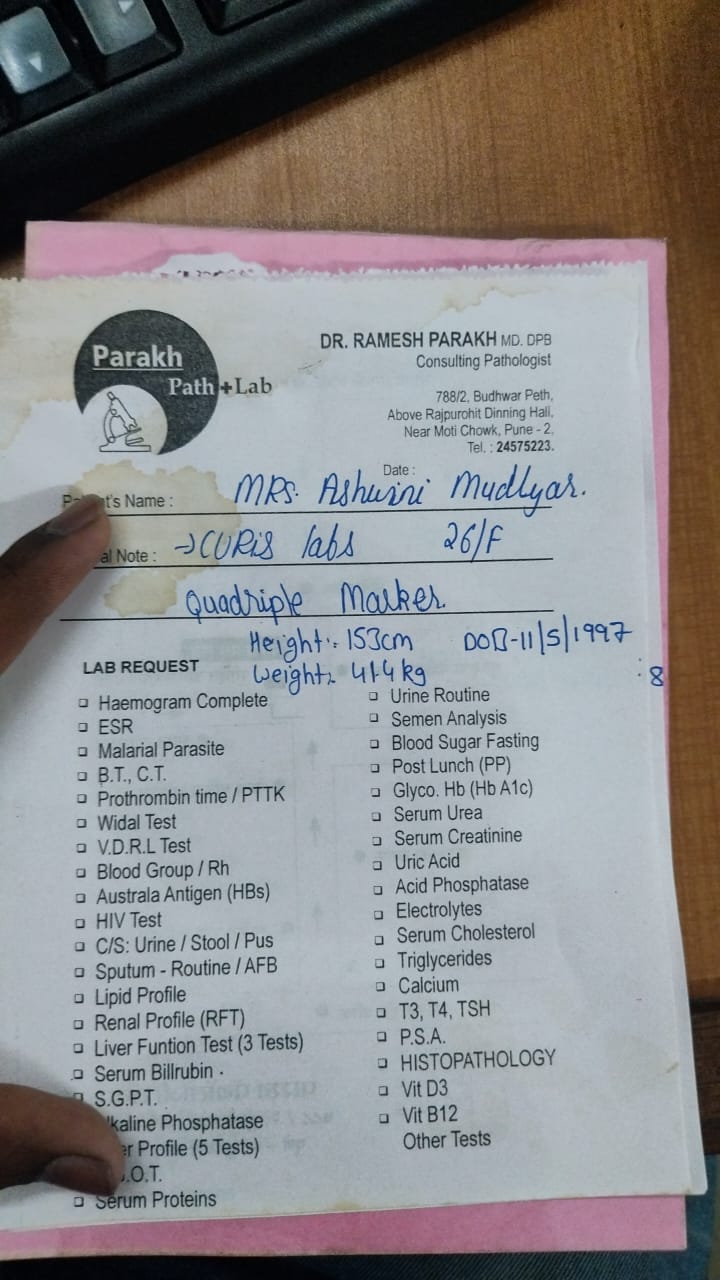 Parakh
Path+Lab
DR. RAMESH PARAKH MD. DPB
Consulting Pathologist
788/2, Budhwar Peth,
Above Rajpurohit Dinning Hall,
Near Moti Chowk, Pune - 2,
Tel. : 24575223.
Date :
Name : MRS. Ashwini Mudlyar.
Note : → CURIS labs 26/F
Quadriple Marker
Height: 153cm DOB-11/5/1997
Weight: 41.4 kg
8
LAB REQUEST
Haemogram Complete
ESR
Malarial Parasite
B.T., C.T.
Prothrombin time / PTTK
Widal Test
V.D.R.L Test
Blood Group / Rh
Australa Antigen (HBs)
HIV Test
C/S: Urine / Stool / Pus
Sputum - Routine / AFB
Lipid Profile
Renal Profile (RFT)
Liver Funtion Test (3 Tests)
Serum Billrubin
S.G.P.T.
kaline Phosphatase
er Profile (5 Tests)
.O.T.
Serum Proteins
Urine Routine
Semen Analysis
Blood Sugar Fasting
Post Lunch (PP)
Glyco. Hb (Hb A1c)
Serum Urea
Serum Creatinine
Uric Acid
Acid Phosphatase
Electrolytes
Serum Cholesterol
Triglycerides
Calcium
T3, T4, TSH
P.S.A.
HISTOPATHOLOGY
Vit D3
Vit B12
Other Tests